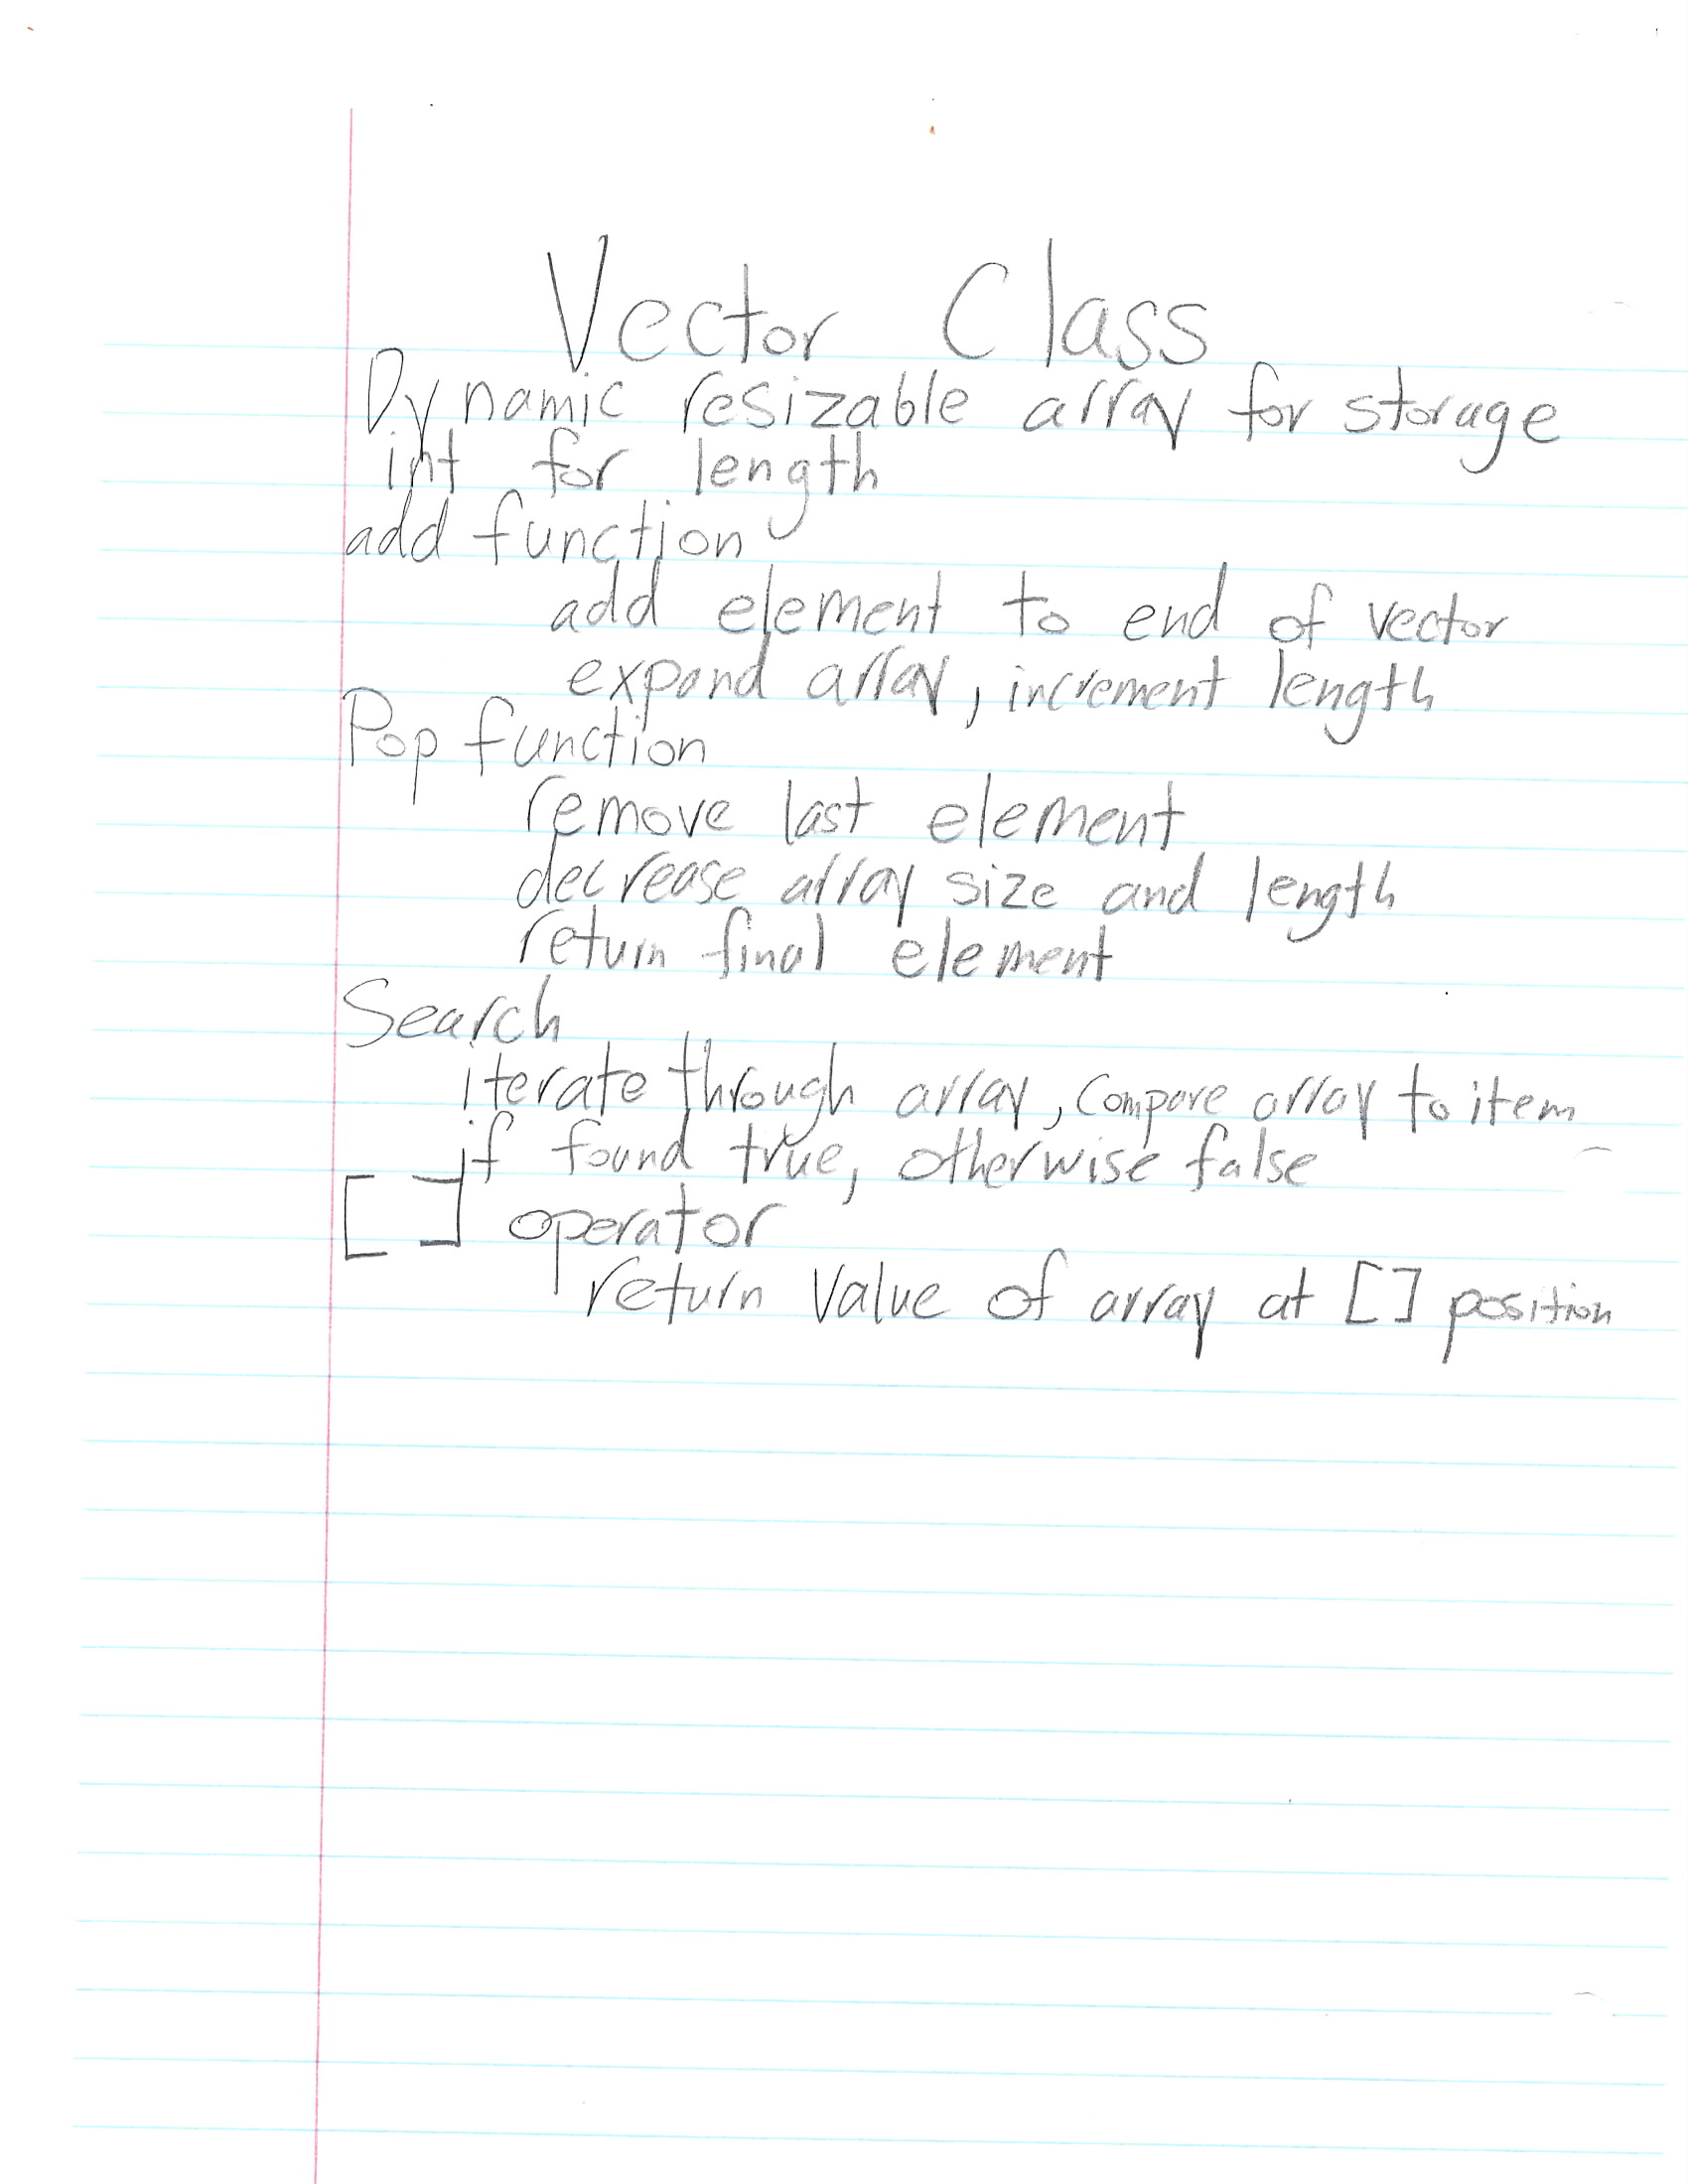 Vector Class
Dynamic resizable array for storage
int for length
add function
add element to end of vector
expand array, increment length
Pop function
remove last element
decrease array size and length
return final element
Search
iterate through array, compare array to item
if found true, otherwise false
[ ] operator
return value of array at [] position